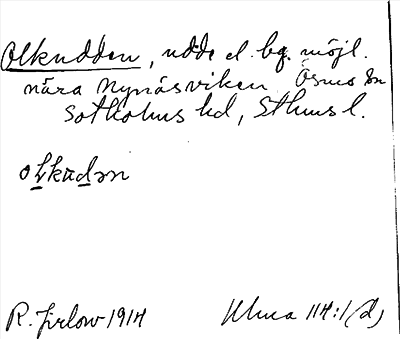 Olkudden, udde el. bg. möjl.
nära Nynäsviken Ösmo sn
Sotholms hd, Sthms l.
olkudən
R. Jirlow 1914
Ulma 114:1(d)